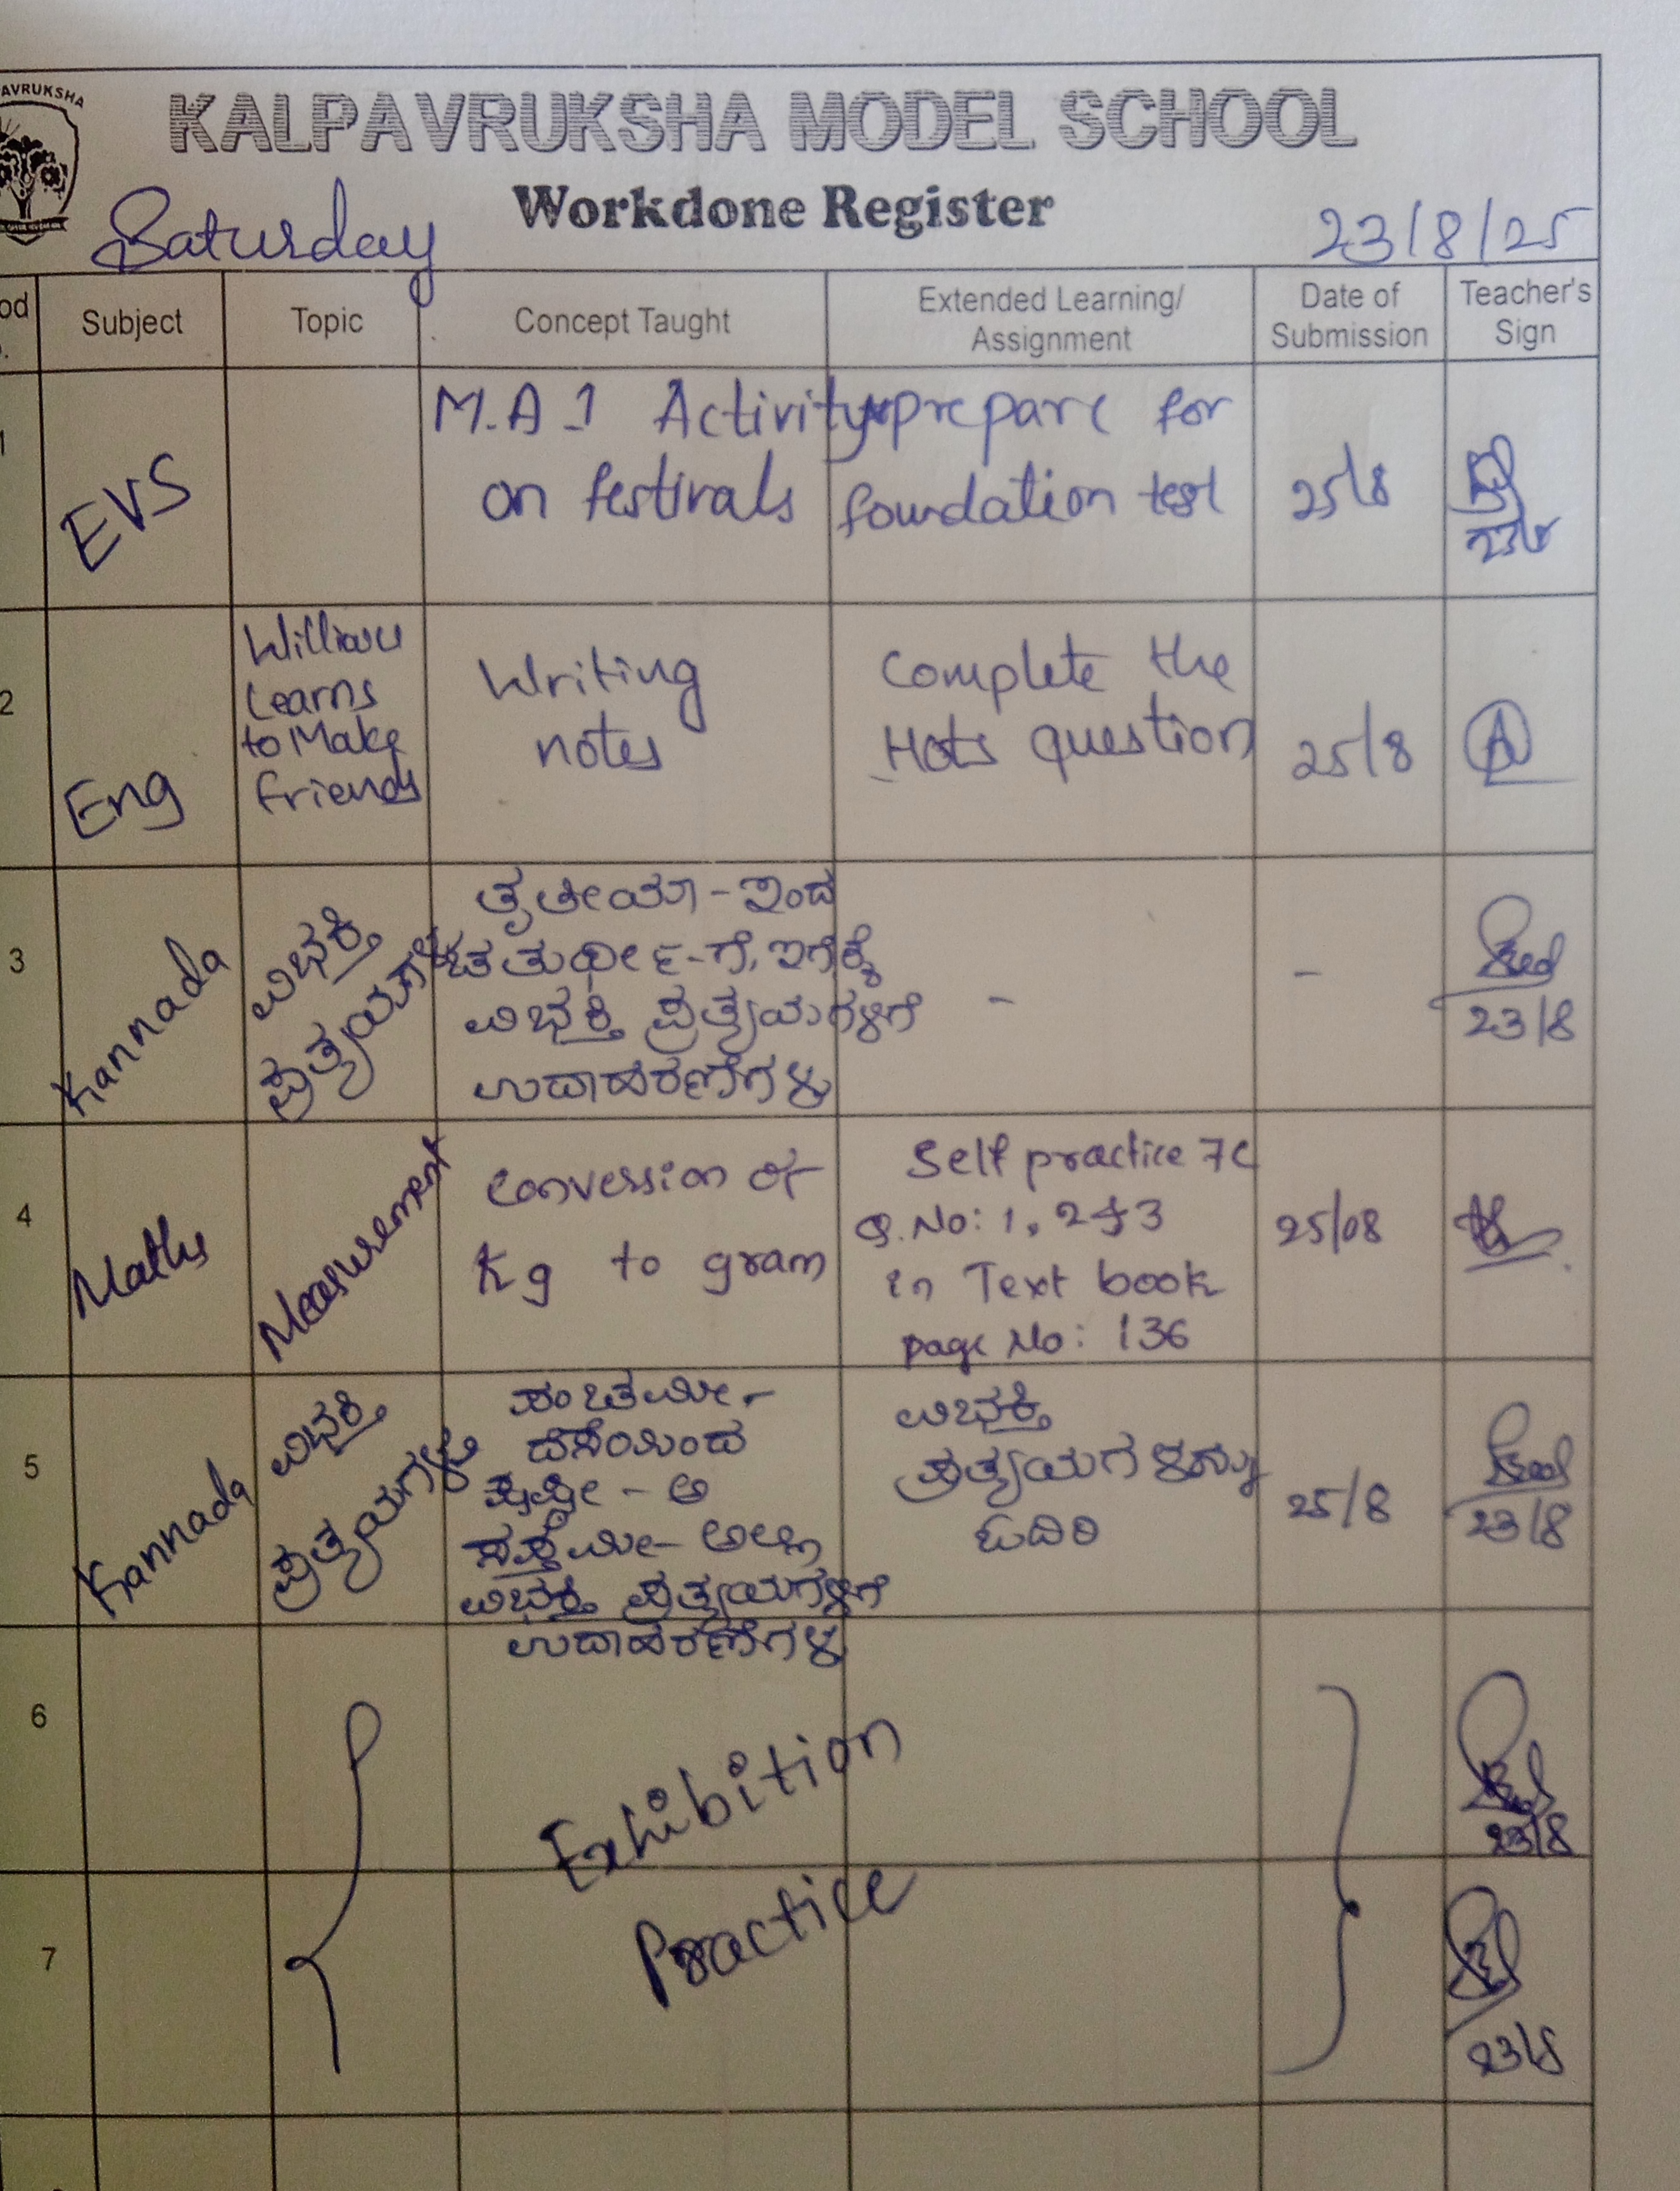 AVRUKSHA
KALPAVRUKSHA MODEL SCHOOL
Workdone Register
Saturday
23/8/25
od
Subject
Topic
Concept Taught
Extended Learning/
Assignment
Date of
Submission
Teacher's
Sign
1
EVS
M.A-1 Activity
on festivals
prepare for
foundation test
25/8
2
Eng
William
Learns
to Make
friends
Writing
notes
Complete the
Hots question
25/8
3
Kannada
ವಿಭಕ್ತಿ
ಪ್ರತ್ಯಯಗಳು
ತೃತೀಯಾ - ಇಂದ
ಚತುರ್ಥೀ - ಗೆ, ಇಗೆ ಕ್ಕೆ
ವಿಭಕ್ತಿ ಪ್ರತ್ಯಯಗಳಿಗೆ
ಉದಾಹರಣೆಗಳು
-
-
23/8
4
Maths
Measurement
Conversion of
Kg to gram
Self practice 7C
Q.No: 1, 2 & 3
in Text book
page No: 136
25/08
5
Kannada
ವಿಭಕ್ತಿ
ಪ್ರತ್ಯಯಗಳು
ಪಂಚಮೀ -
ದೆಸೆಯಿಂದ
ಷಷ್ಠೀ - ಅ
ಸಪ್ತಮೀ - ಅಲ್ಲಿ
ವಿಭಕ್ತಿ ಪ್ರತ್ಯಯಗಳಿಗೆ
ಉದಾಹರಣೆಗಳು
ವಿಭಕ್ತಿ
ಪ್ರತ್ಯಯಗಳನ್ನು
ಓದಿರಿ
25/8
23/8
6
Exhibition
23/8
7
Practice
23/8